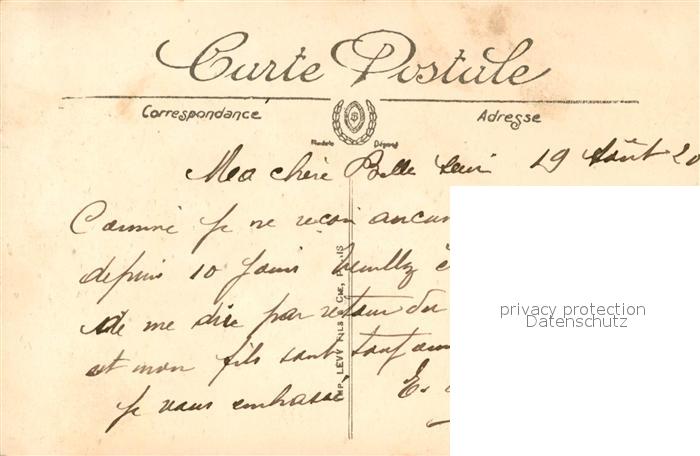 Carte Postale
Correspondance
Adresse
Modèle Déposé
Ma chère Belle Seur 19 Août 20
Comme je ne reçoi aucun
depuis 10 jours veuillz
de me dire par retour du
et mon fils sont
je vous embrasse E.
IMP. LEVY FILS & CIE, PARIS
privacy protection
Datenschutz